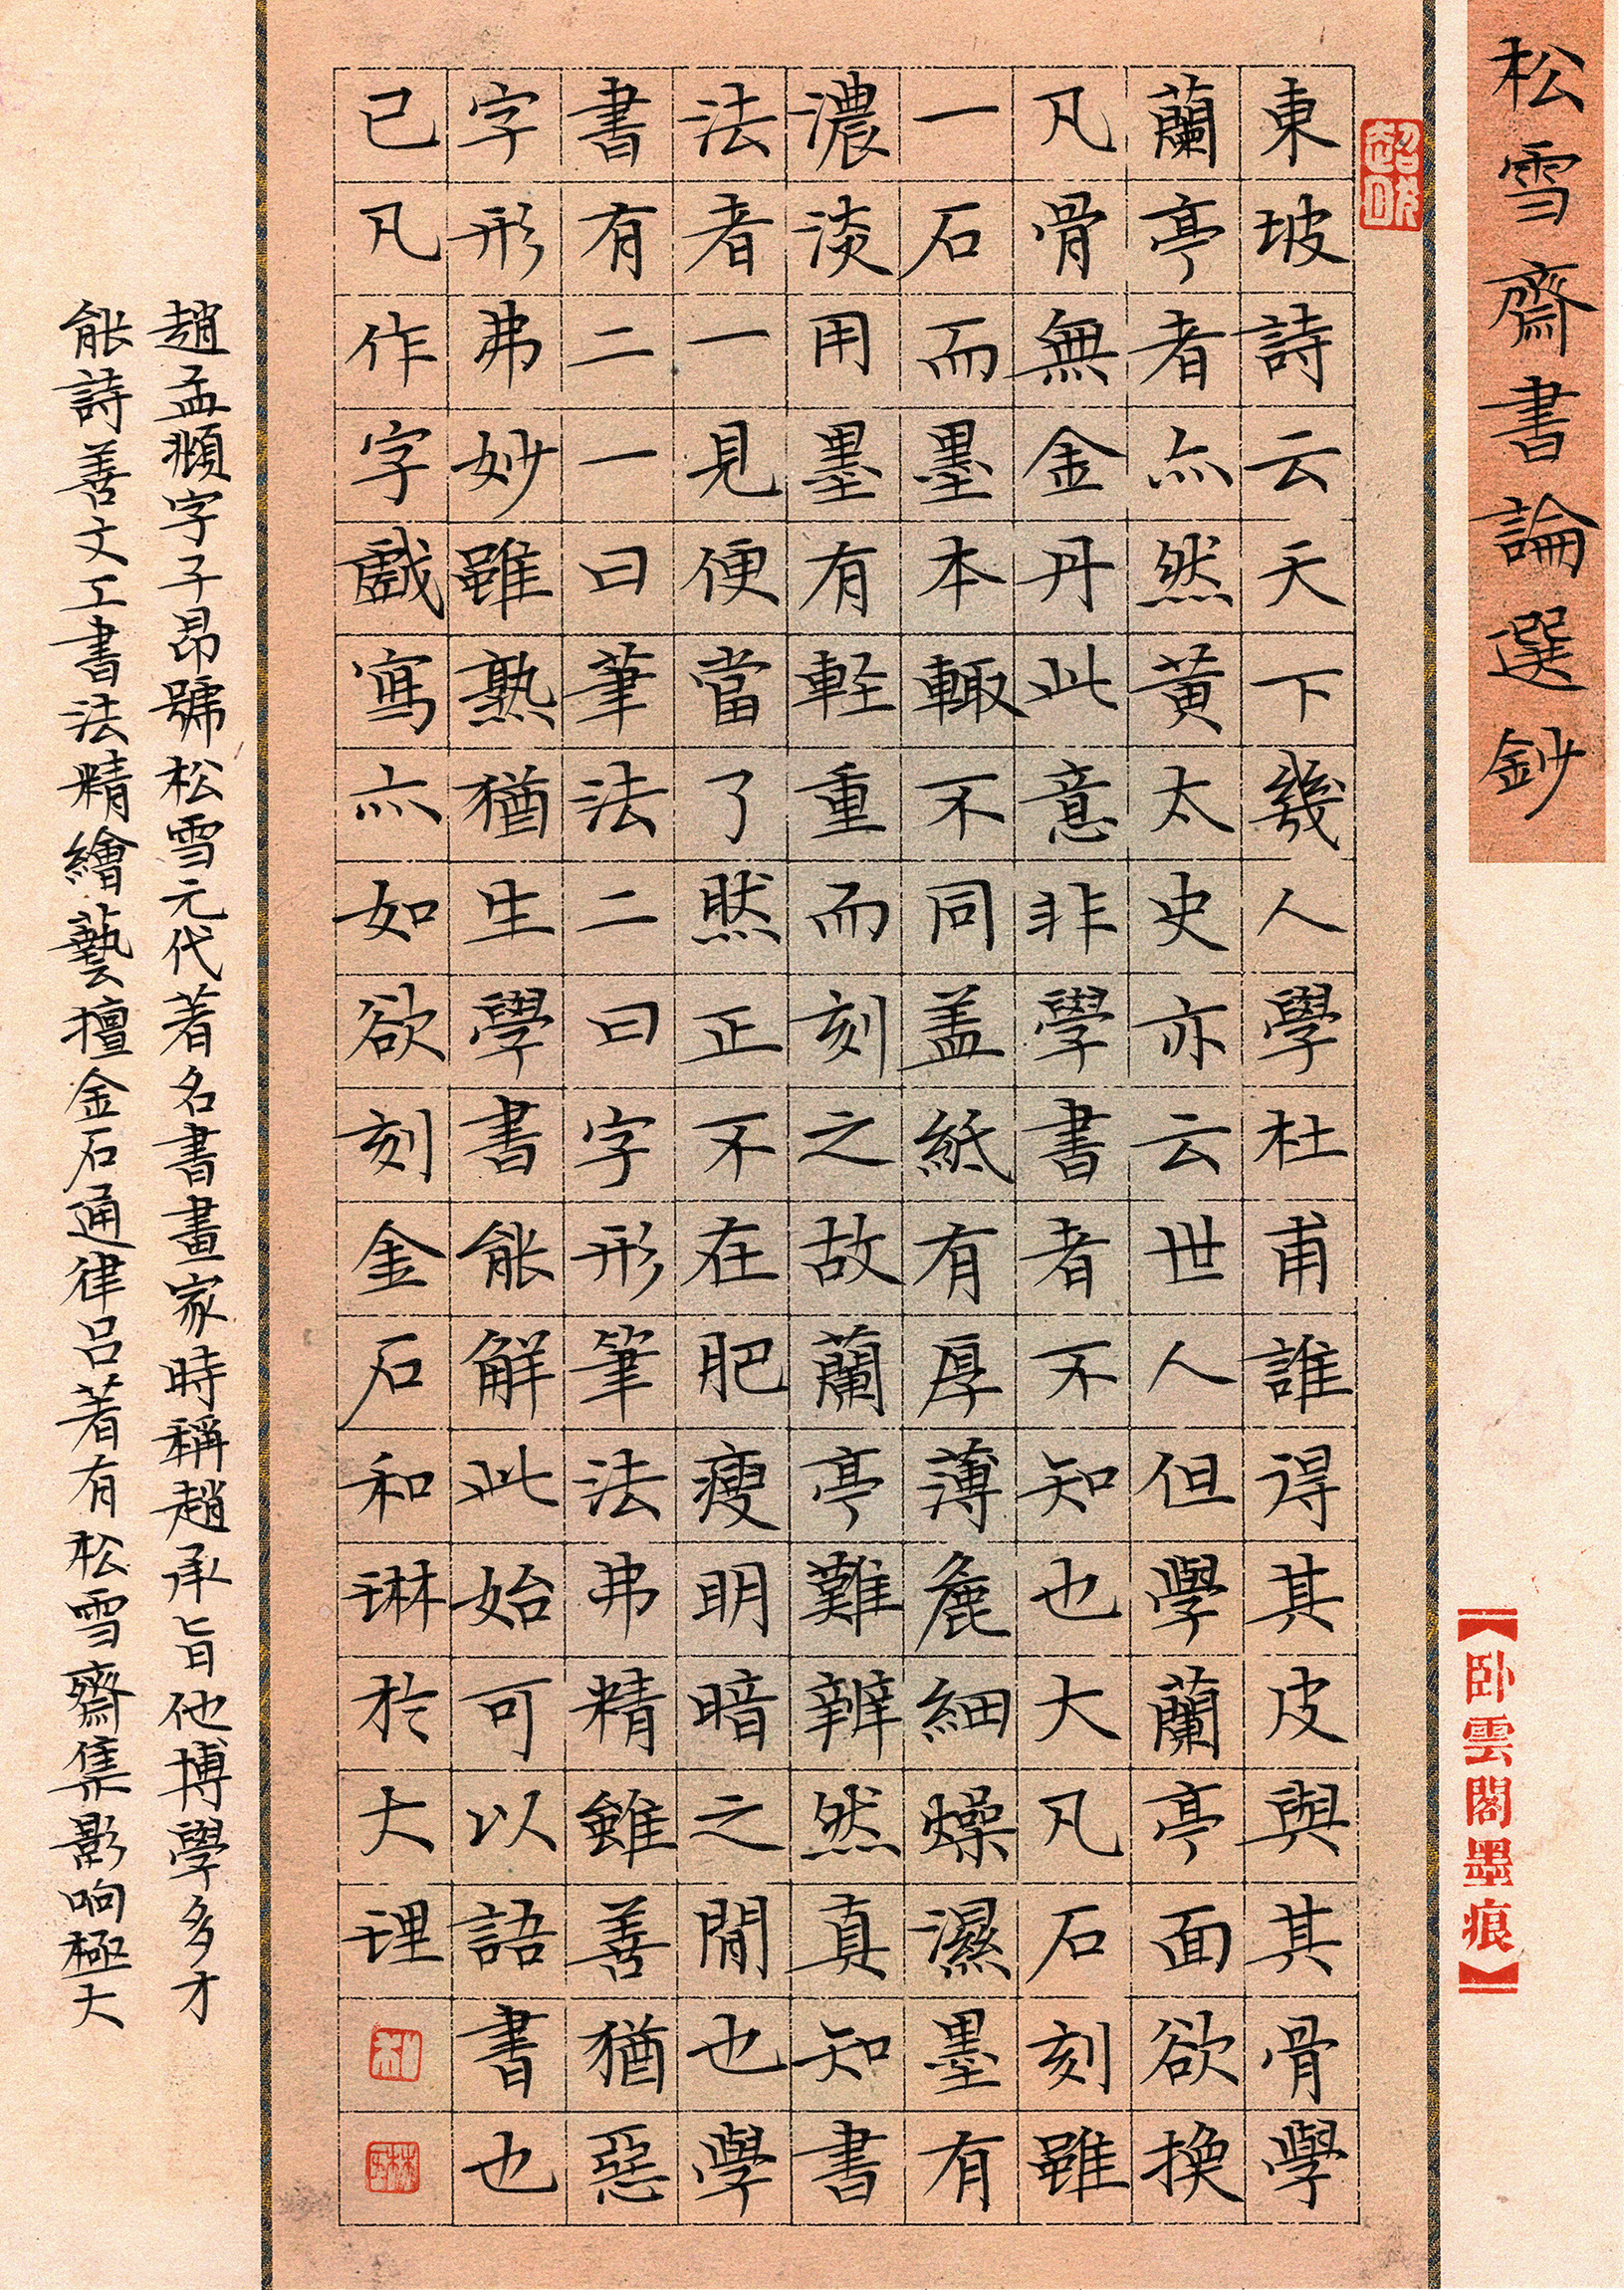 松雪齋書論選鈔
東坡詩云天下幾人學杜甫誰得其皮與其骨學
蘭亭者亦然黃太史亦云世人但學蘭亭面欲換
凡骨無金丹此意非學書者不知也大凡石刻雖
一石而墨本輒不同蓋紙有厚薄麁細燥濕墨有
濃淡用墨有輕重而刻之故蘭亭難辨然真知書
法者一見便當了然正不在肥瘦明暗之閒也學
書有二一曰筆法二曰字形筆法弗精雖善猶惡
字形弗妙雖熟猶生學書能解此始可以語書也
已凡作字戲寫亦如欲刻金石和琳於大理
趙孟頫字子昂號松雪元代著名書畫家時稱趙承旨他博學多才
能詩善文工書法精繪藝擅金石通律呂著有松雪齋集影响極大
【卧雲閣墨痕】